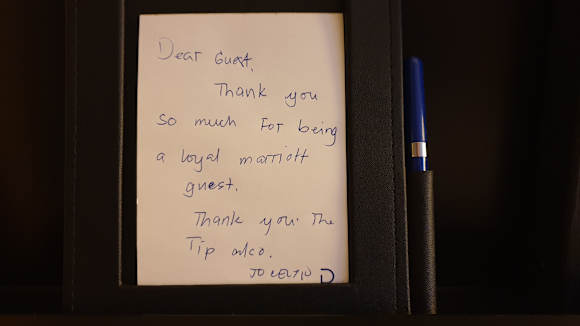 Dear Guest,
Thank you
so much For being
a loyal marriott
guest.
Thank you. The
Tip also.
D